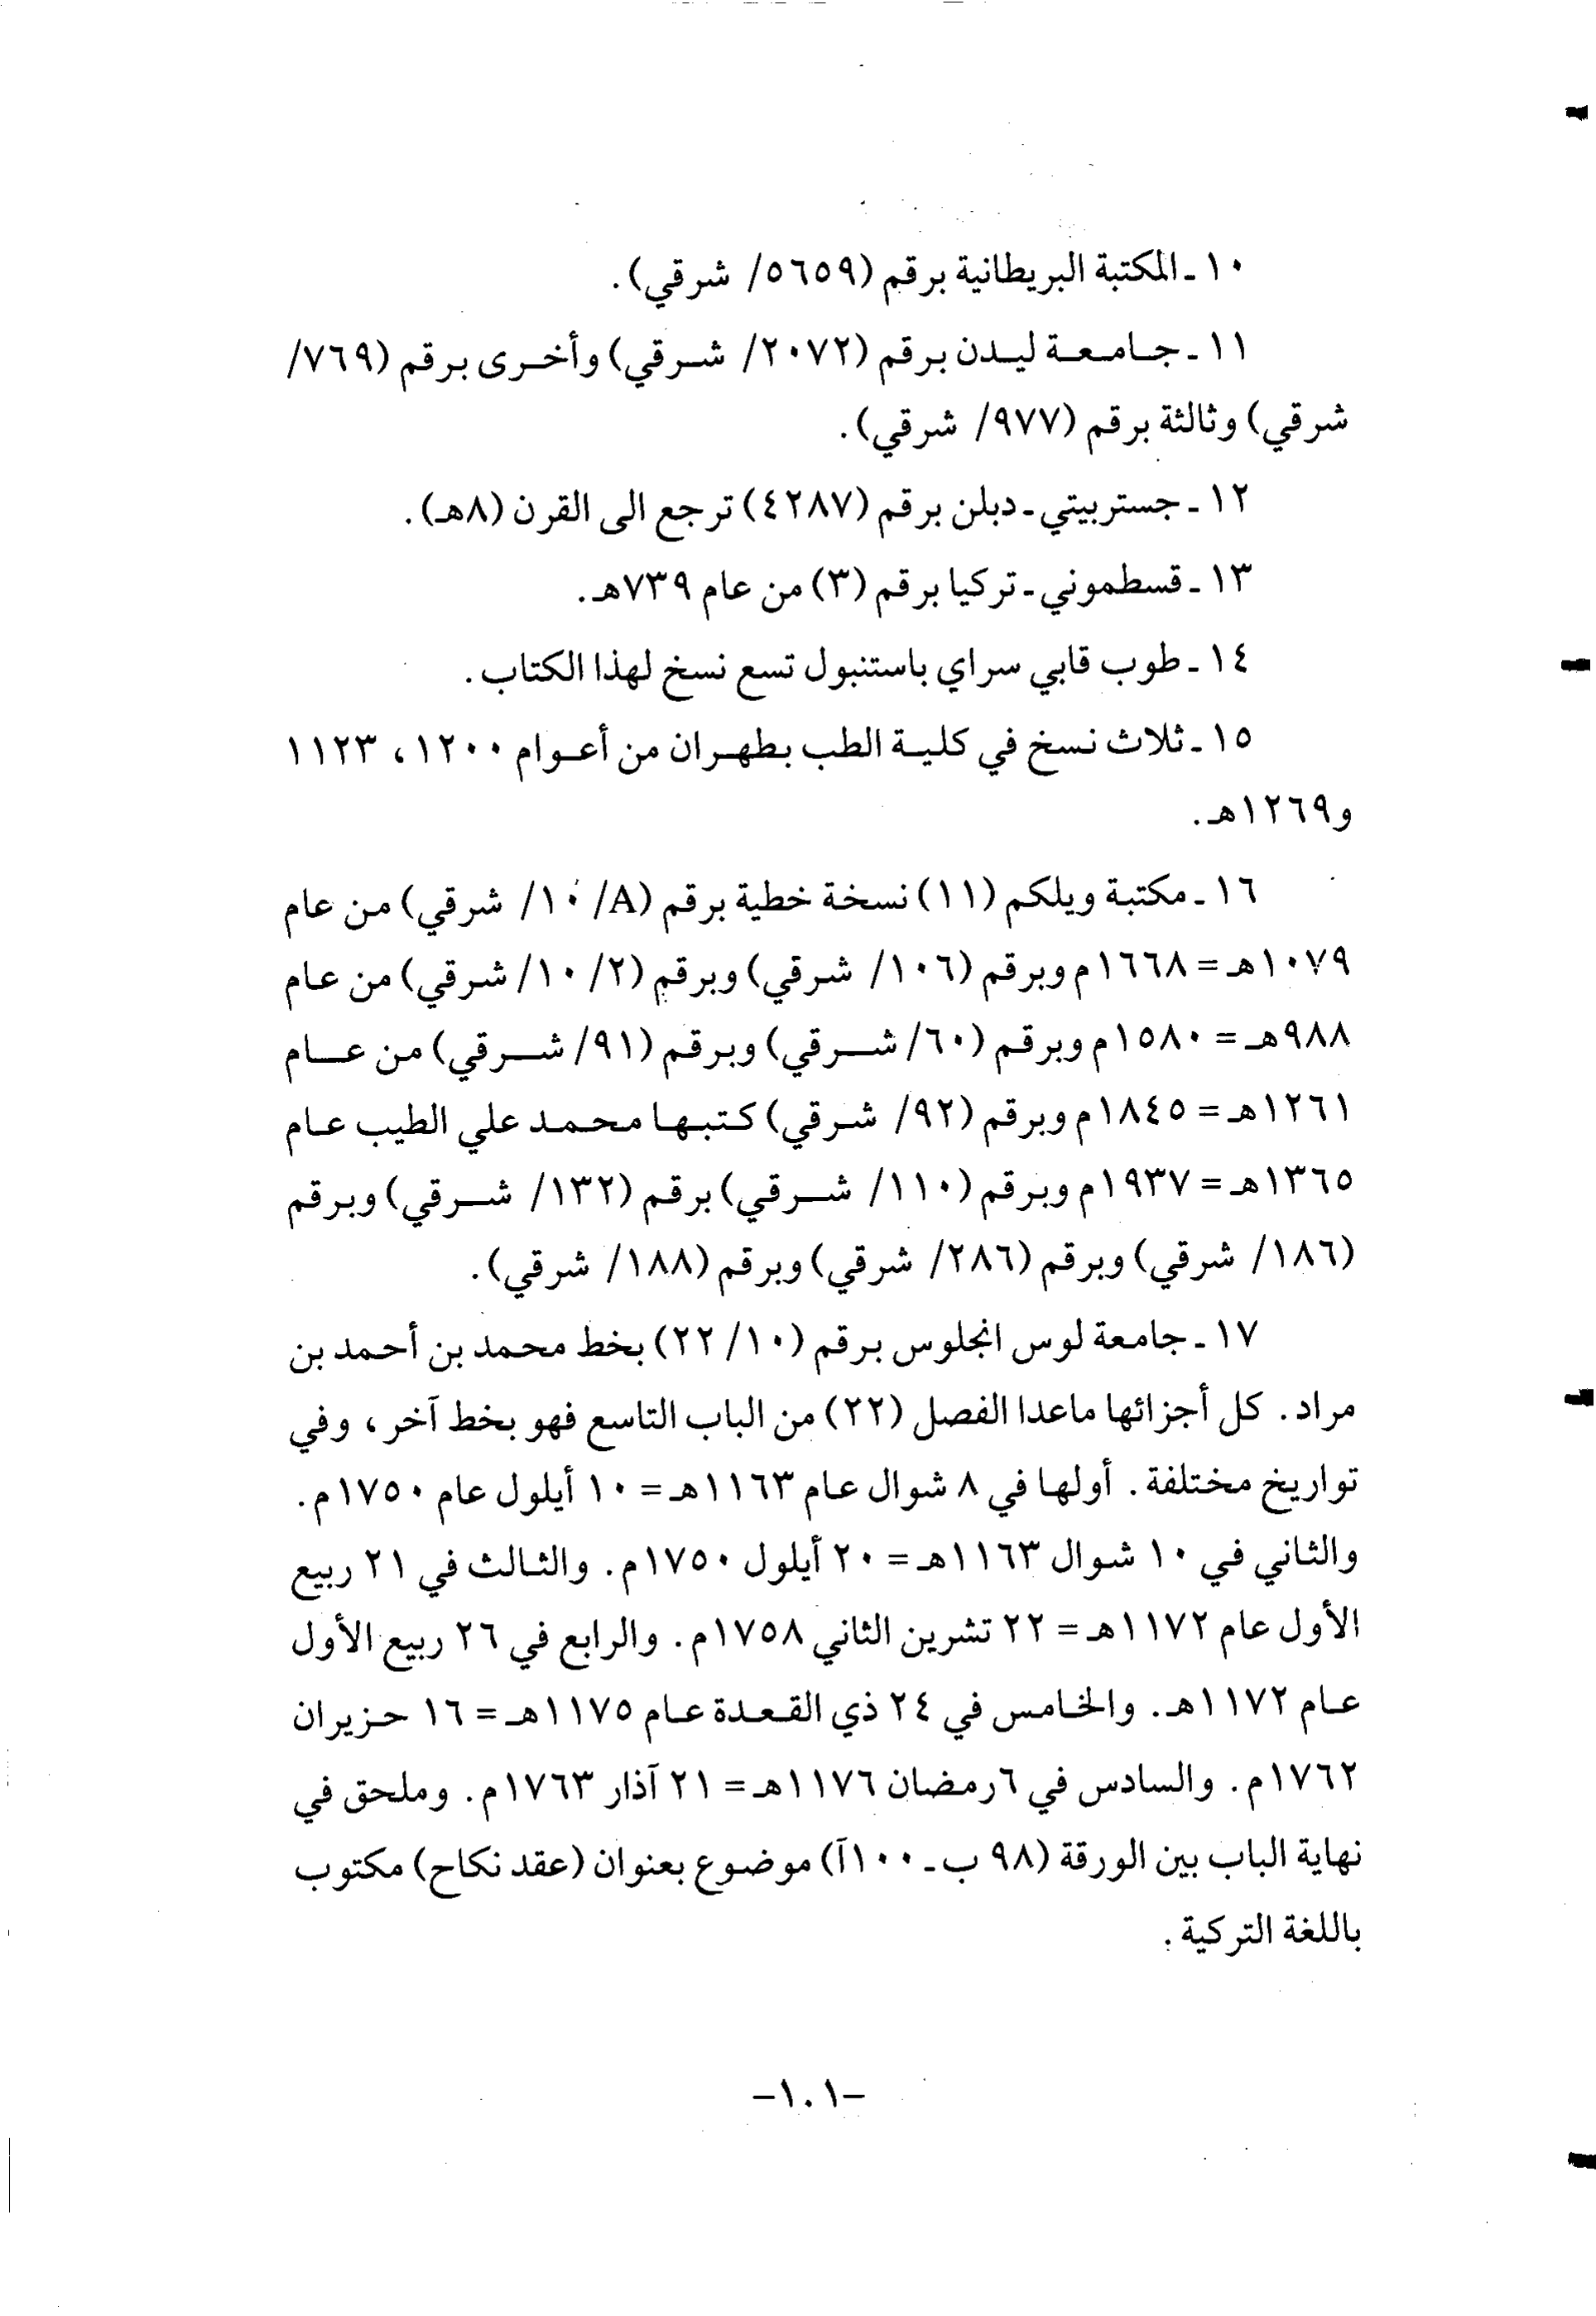 ١٠ - المكتبة البريطانية برقم (٥٦٥٩/ شرقي).
١١ - جامعة ليدن برقم (٢٠٧٢/ شرقي) وأخرى برقم (٧٦٩/
شرقي) وثالثة برقم (٩٧٧/ شرقي).
١٢ - جستربيتي - دبلن برقم (٤٢٨٧) ترجع الى القرن (٨هـ).
١٣ - قسطموني - تركيا برقم (٣) من عام ٧٣٩هـ.
١٤ - طوب قابي سراي باستنبول تسع نسخ لهذا الكتاب.
١٥ - ثلاث نسخ في كلية الطب بطهران من أعوام ١٢٠٠، ١١٢٣
و١٢٦٩هـ.
١٦ - مكتبة ويلكم (١١) نسخة خطية برقم (A/ ١٠/ شرقي) من عام
١٠٧٩هـ = ١٦٦٨م وبرقم (١٠٦/ شرقي) وبرقم (٢/ ١٠/ شرقي) من عام
٩٨٨هـ = ١٥٨٠م وبرقم (٦٠/ شرقي) وبرقم (٩١/ شرقي) من عام
١٢٦١هـ = ١٨٤٥م وبرقم (٩٢/ شرقي) كتبها محمد علي الطيب عام
١٣٦٥هـ = ١٩٣٧م وبرقم (١١٠/ شرقي) برقم (١٣٢/ شرقي) وبرقم
(١٨٦/ شرقي) وبرقم (٢٨٦/ شرقي) وبرقم (١٨٨/ شرقي).
١٧ - جامعة لوس انجلوس برقم (١٠/ ٢٢) بخط محمد بن أحمد بن
مراد. كل أجزائها ماعدا الفصل (٢٢) من الباب التاسع فهو بخط آخر، وفي
تواريخ مختلفة. أولها في ٨ شوال عام ١١٦٣هـ = ١٠ أيلول عام ١٧٥٠م.
والثاني في ١٠ شوال ١١٦٣هـ = ٢٠ أيلول ١٧٥٠م. والثالث في ٢١ ربيع
الأول عام ١١٧٢هـ = ٢٢ تشرين الثاني ١٧٥٨م. والرابع في ٢٦ ربيع الأول
عام ١١٧٢هـ. والخامس في ٢٤ ذي القعدة عام ١١٧٥هـ = ١٦ حزيران
١٧٦٢م. والسادس في ٦ رمضان ١١٧٦هـ = ٢١ آذار ١٧٦٣م. وملحق في
نهاية الباب بين الورقة (٩٨ ب - ١٠٠آ) موضوع بعنوان (عقد نكاح) مكتوب
باللغة التركية.
-١٠١-